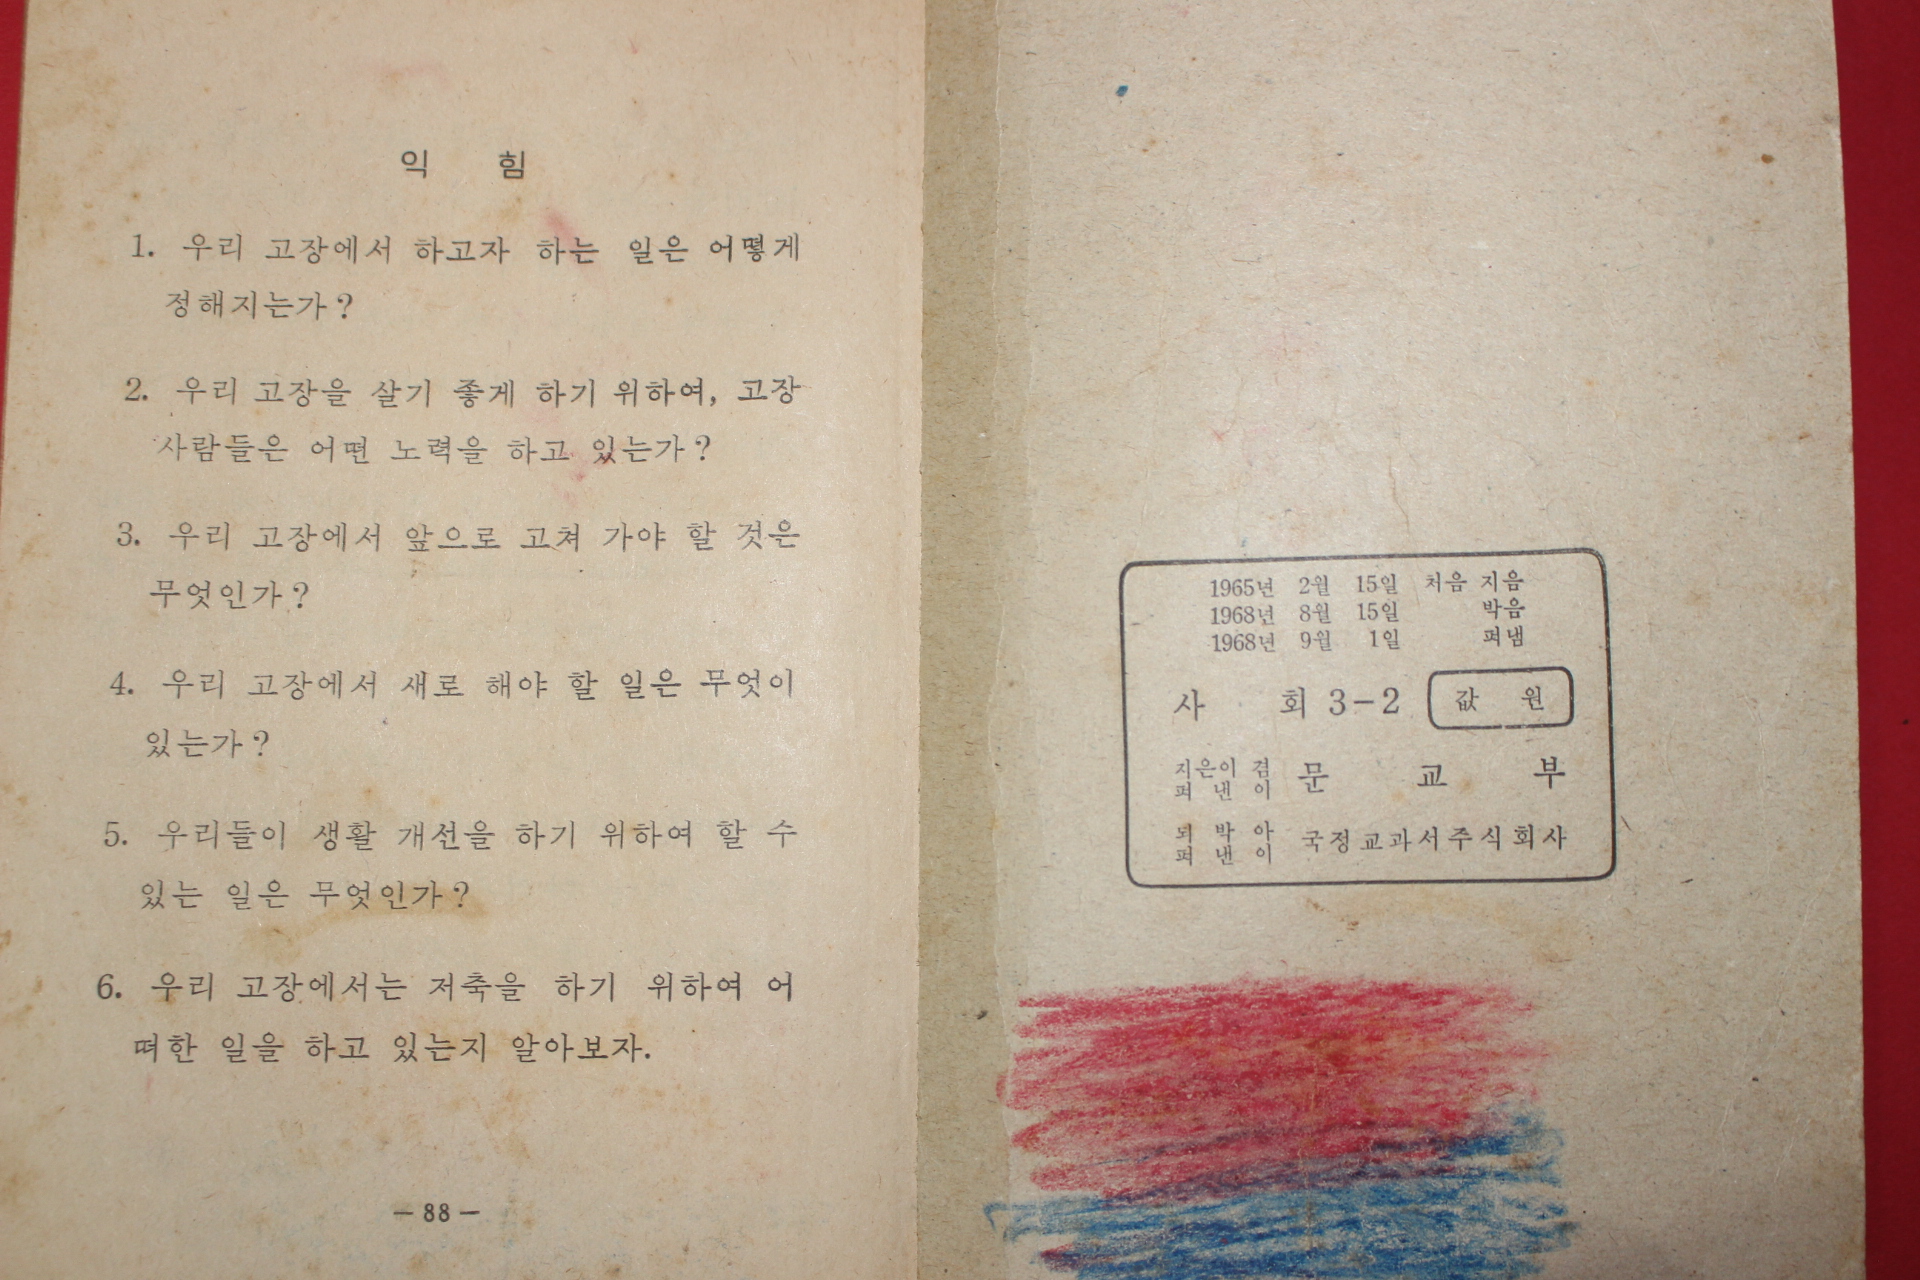 익 힘
1. 우리 고장에서 하고자 하는 일은 어떻게
정해지는가?
2. 우리 고장을 살기 좋게 하기 위하여, 고장
사람들은 어떤 노력을 하고 있는가?
3. 우리 고장에서 앞으로 고쳐 가야 할 것은
무엇인가?
4. 우리 고장에서 새로 해야 할 일은 무엇이
있는가?
5. 우리들이 생활 개선을 하기 위하여 할 수
있는 일은 무엇인가?
6. 우리 고장에서는 저축을 하기 위하여 어
떠한 일을 하고 있는지 알아보자.
— 88 —
1965년 2월 15일 처음 지음
1968년 8월 15일 박음
1968년 9월 1일 펴냄
사 회 3-2 값 원
지은이 겸
펴 낸 이 문 교 부
되 박 아
펴 낸 이 국정교과서주식회사